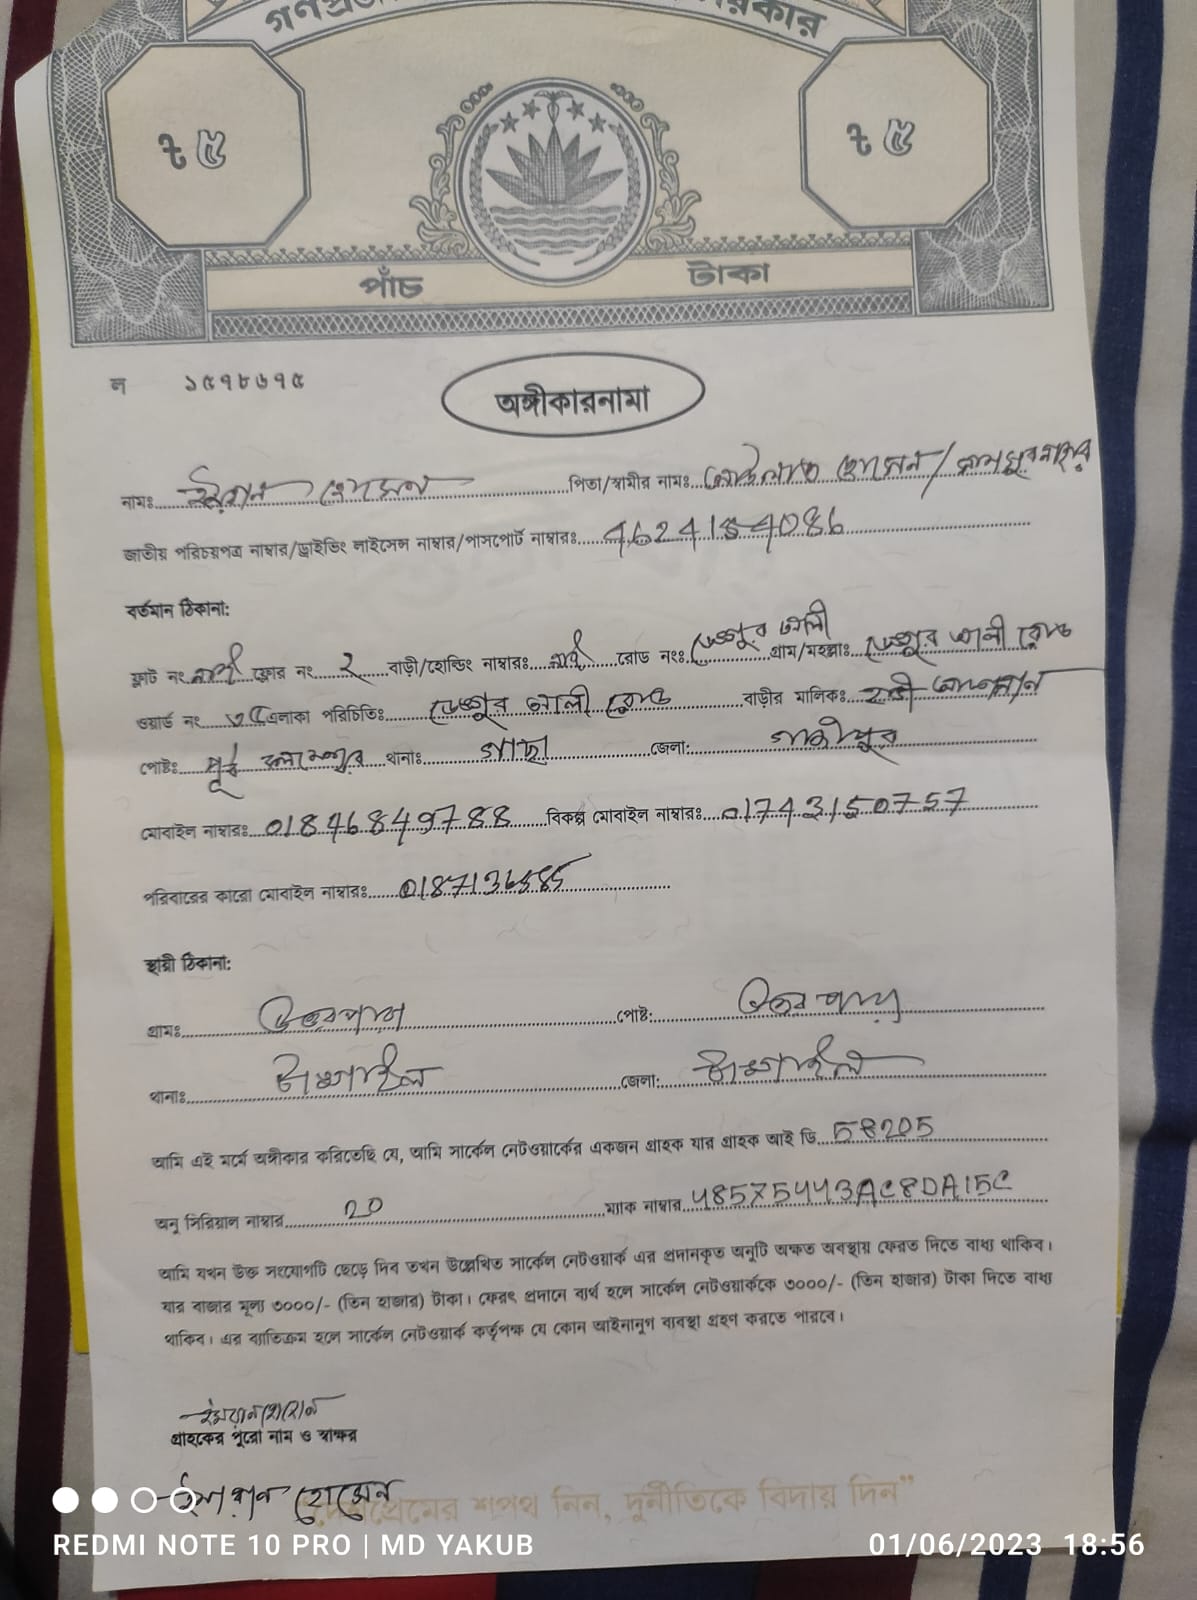 ৳ ৫ ৳ ৫
পাঁচ টাকা
ল ১৫৭৮৬৭৫
অঙ্গীকারনামা
নামঃ হোসেন পিতা/স্বামীর নামঃ হোসেন /
জাতীয় পরিচয়পত্র নাম্বার/ড্রাইভিং লাইসেন্স নাম্বার/পাসপোর্ট নাম্বারঃ 4624154086
বর্তমান ঠিকানা:
ফ্লাট নং ফ্লোর নং ২ বাড়ী/হোল্ডিং নাম্বারঃ রোড নংঃ আলী গ্রাম/মহল্লাঃ আলী রোড
ওয়ার্ড নং ৩৫ এলাকা পরিচিতিঃ আলী রোড বাড়ীর মালিকঃ
পোষ্টঃ পূর্ব থানাঃ গাছা জেলা: গাজীপুর
মোবাইল নাম্বারঃ 01846849788 বিকল্প মোবাইল নাম্বারঃ 01743150757
পরিবারের কারো মোবাইল নাম্বারঃ
স্থায়ী ঠিকানা:
গ্রামঃ পোষ্ট:
থানাঃ টাঙ্গাইল জেলা: টাঙ্গাইল
আমি এই মর্মে অঙ্গীকার করিতেছি যে, আমি সার্কেল নেটওয়ার্কের একজন গ্রাহক যার গ্রাহক আই ডি 58205
অনু সিরিয়াল নাম্বার 20 ম্যাক নাম্বার 48575443AC8DA15C
আমি যখন উক্ত সংযোগটি ছেড়ে দিব তখন উল্লেখিত সার্কেল নেটওয়ার্ক এর প্রদানকৃত অনুটি অক্ষত অবস্থায় ফেরত দিতে বাধ্য থাকিব।
যার বাজার মূল্য ৩০০০/- (তিন হাজার) টাকা। ফেরৎ প্রদানে ব্যর্থ হলে সার্কেল নেটওয়ার্ককে ৩০০০/- (তিন হাজার) টাকা দিতে বাধ্য
থাকিব। এর ব্যতিক্রম হলে সার্কেল নেটওয়ার্ক কর্তৃপক্ষ যে কোন আইনানুগ ব্যবস্থা গ্রহণ করতে পারবে।
গ্রাহকের পুরো নাম ও স্বাক্ষর
হোসেন
শপথ নিন, দুর্নীতিকে বিদায় দিন"
REDMI NOTE 10 PRO | MD YAKUB 01/06/2023 18:56